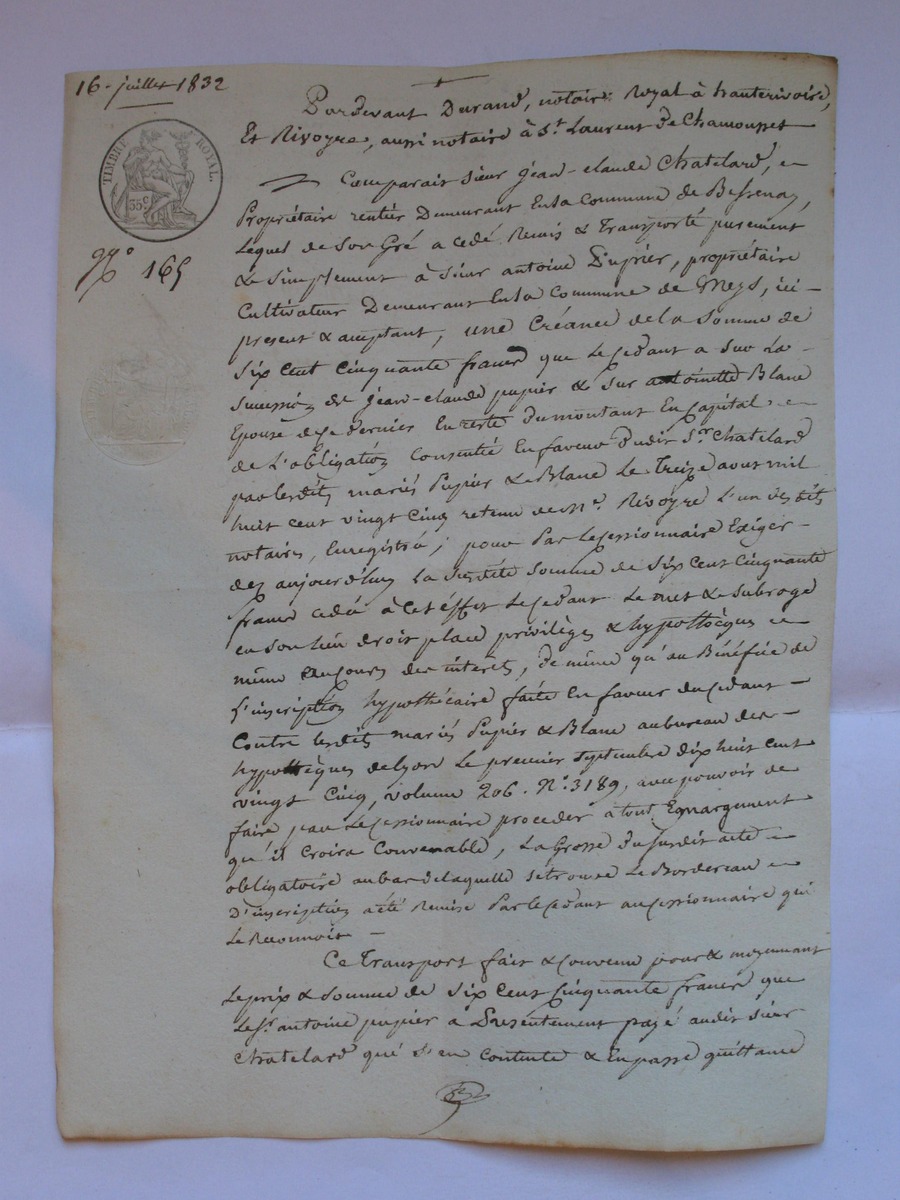 16 juillet 1832
TIMBRE ROYAL.
35c
No 165
Pardevant Durand, notaire Royal à hauterivoire,
Et Rivoyre, aussi notaire à St. Laurent de Chamousset
Comparait Sieur Jean-claude Chatelard,
Propriétaire rentier Demeurant En la Commune de Bessenay,
Lequel de Son Gré a cedé Remis & Transporté purement
& Simplement à Sieur antoine Pupier, propriétaire
Cultivateur Demeurant En la Commune de Meys, ici
present & acceptant, une Créance de la Somme de
Six Cent Cinquante francs que le Cedant a Sur La
Succession de Jean-claude pupier & Sur antoinette Blanc
Epouse de Ce dernier En reste du montant En Capital
de L'obligation Consentie En faveur dudit Sr. Chatelard
par lesdits mariés Pupier & Blanc Le Treize aoust mil
huit cent vingt Cinq retenu de Me. Rivoyre L'un desdits
notaires, Enregistré; pour Par le Cessionnaire Exiger
dez aujourd'hui La Susdite Somme de Six Cent Cinquante
francs cedée à Cet éffet Le Cedant Le met & Subroge
en Son lieu droit place privilèges & hypothèques
même au Cours des interets, de même qu'au Bénéfice de
L'inscription hypothécaire faite En faveur du Cedant
Contre lesdits mariés Pupier & Blanc au bureau des
hypothèques de Lyon Le premier Septembre dix huit cent
vingt Cinq, volume 206. No. 3189, avec pouvoir de
faire par le Cessionnaire proceder à tout Emargement
qu'il Croira Convenable, La Grosse du Susdit acte
obligatoire au bas de laquelle Se trouve Le Bordereau
D'inscription a été Remise Par le Cedant au Cessionnaire qui
Le Reconnoit
Ce Transport fait & Convenu pour & moyennant
Le prix & Somme de Six Cent Cinquante francs que
Le Sr. antoine pupier à Présentement payé audit Sieur
Chatelard qui S'en Contente & En passe quittance